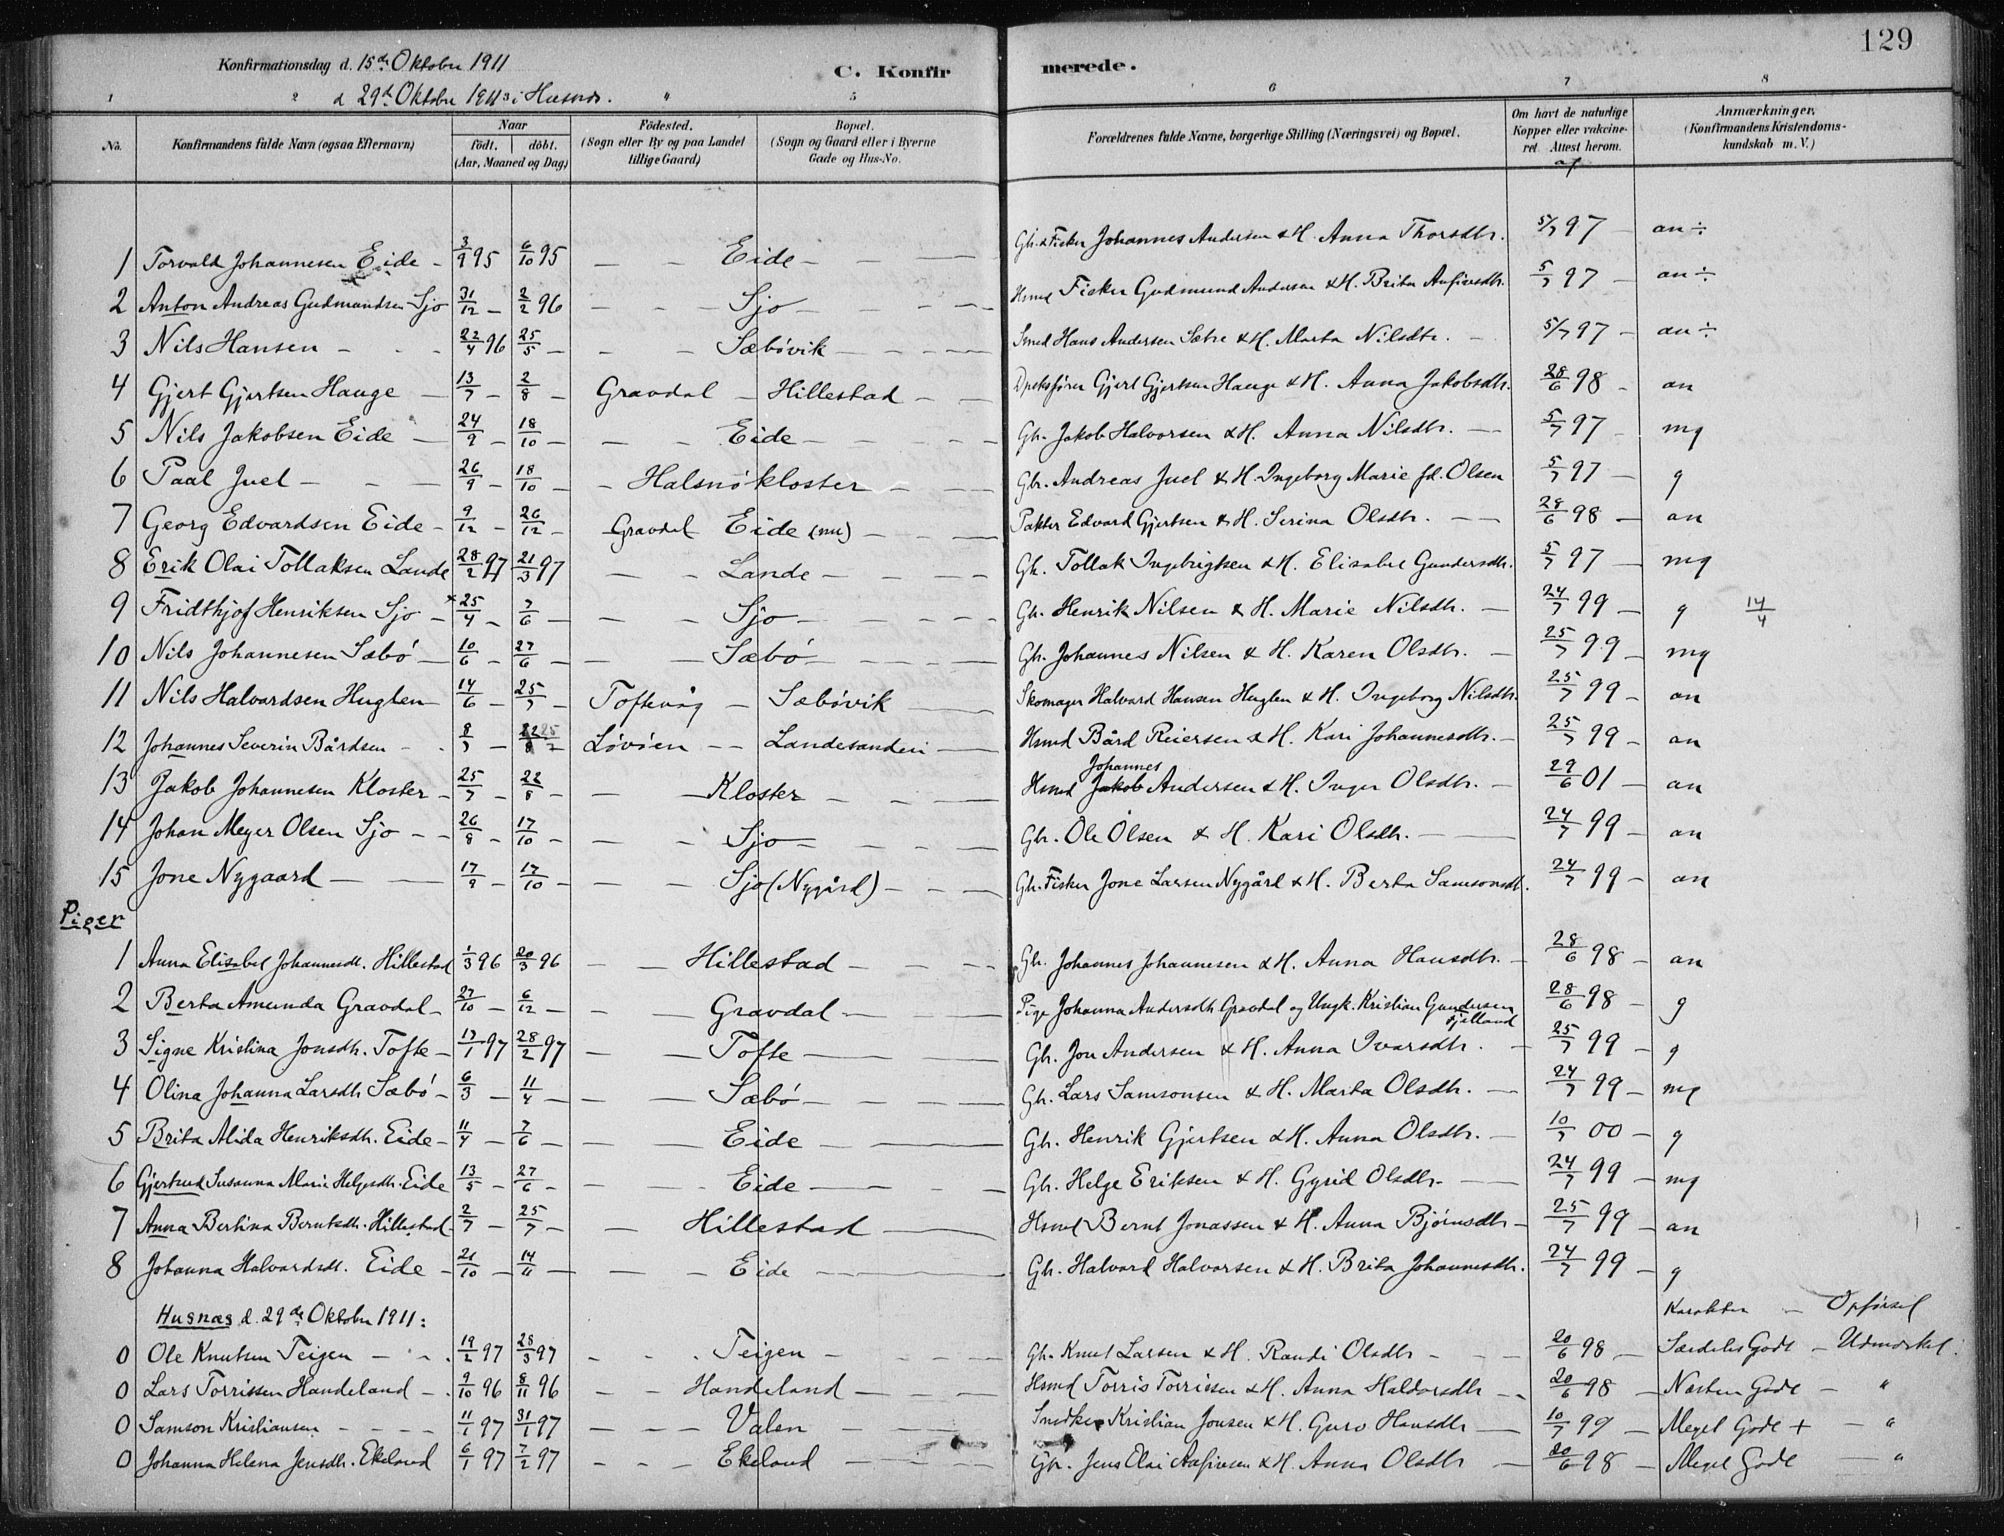 129
Konfirmationsdag d. 15de Oktober 1911
C. Konfirmerede.
d 29de Oktober 1911 i Husnæs.
1 2 4 5 6 7 8
No. Konfirmandens fulde Navn (ogsaa Efternavn) Naar födt. döbt. (Aar, Maaned og Dag) Födested. (Sogn eller By og paa Landet tillige Gaard) Bopæl. (Sogn og Gaard eller i Byerne Gade og Hus-No. Forældrenes fulde Navne, borgerlige Stilling (Næringsvei) og Bopæl. Om havt de naturlige Kopper eller vakcineret. Attest herom. af Anmærkninger. (Konfirmandens Kristendomskundskab m. V.)
1 Torvald Johannesen Eide - 3/9 95 6/10 95 - - Eide - - Gb. & Fisker Johannes Andersen & H. Anna Thorsdtr. 5/7 97 - an ÷
2 Anton Andreas Gudmundsen Sjo 31/12 - 2/2 96 - - Sjo - - Hsmd Fisker Gudmund Andersen & H. Brita Anfinsdtr. 5/7 97 - an ÷
3 Nils Hansen - - - 22/4 96 25/5 - - - Sæbövik - - Smed Hans Andersen Sætre & H. Marta Nilsdtr. - 5/7 97 - an ÷
4 Gjert Gjertsen Hauge - 13/7 - 2/8 - Gravdal - Hillestad - - Gjert Gjertsen Hauge & H. Anna Jakobsdtr. 28/6 98 - an
5 Nils Jakobsen Eide - 24/9 - 18/10 - - - Eide - - Gb. Jakob Halvorsen & H. Anna Nilsdtr. - 5/7 97 - mg
6 Paal Juel - - - 26/9 - 18/10 - - Halsnökloster - - Gbr. Andreas Juel & H. Ingeborg Marie fd. Olsen 5/7 97 - g
7 Georg Edvardsen Eide - 9/12 - 26/12 - Gravdal Eide (nu) - - Pakter Edvard Gjertsen & H. Serina Olsdtr. - - 28/6 98 - an
8 Erik Olai Tollaksen Lande 28/2 97 21/3 97 - - Lande - - Gb. Tollak Ingebrigtsen & H. Elisabet Gundersdtr. 5/7 97 - mg
9 Fridthjof Henriksen Sjo - × 25/4 - 7/6 - - - Sjo - - Gb. Henrik Nilsen & H. Marie Nilsdtr. - 24/7 99 - g 14/4
10 Nils Johannesen Sæbö - 10/6 - 27/6 - - - Sæbö - - Gb. Johannes Nilsen & H. Karen Olsdtr. - 25/7 99 - mg
11 Nils Halvardsen Huglen 14/6 - 25/7 - Toftevåg - Sæbövik - Skomager Halvard Hansen Huglen & H. Ingeborg Nilsdtr. 25/7 99 - an
12 Johannes Severin Bårdsen - - 8/7 - 25/7 - Lövöen - - Landesanden - Hsmd Bård Reiersen & H. Kari Johannesdtr. - 25/7 99 - an
13 Jakob Johannesen Kloster - 25/7 - 22/8 - - - Kloster - - Hsmd Jakob Johannes Andersen & H. Inger Olsdtr. - 29/6 01 - an
14 Johan Meyer Olsen Sjo - - 26/8 - 17/10 - - - Sjo - - Gb. Ole Olsen & H. Kari Olsdtr. - 24/7 99 - an
15 Jone Nygaard - - 17/9 - 17/10 - - - Sjo (Nygård) - - Gb. Fisker Jone Larsen Nygård & H. Berta Samsonsdt. 24/7 99 - an
Piger
1 Anna Elisabet Johannesdt. Hillestad 1/3 96 20/3 96 - - Hillestad - - Gb. Johannes Johannesen & H. Anna Hansdtr. - 28/6 98 - an
2 Berta Amanda Gravdal - 27/10 - 6/12 - - - Gravdal - - Pige Johanna Andersdtr. Gravdal og Ungk. Kristian Gundersen 28/6 98 - g
3 Signe Kristina Jonsdtr. Tofte - 17/1 97 28/2 97 - - Tofte - - Gb. Jon Andersen & H. Anna Ivarsdtr. - 25/7 99 - g
4 Olina Johanna Larsdtr Sæbö - 6/3 - 11/4 - - - Sæbö - - Gb. Lars Samsonsen & H. Marta Olsdtr. - 24/7 99 - mg
5 Brita Alida Henriksdtr. Eide - 11/4 - 7/6 - - - Eide - - Gb. Henrik Gjertsen & H. Anna Olsdtr. - 10/7 00 - g
6 Gjertrud Susanna Marie Helgesdtr. Eide 13/5 - 27/6 - - - Eide - - Gb. Helge Eriksen & H. Gyrid Olsdtr. - 24/7 99 - mg
7 Anna Bertina Berntsdtr. Hillestad - 2/7 - 25/7 - - Hillestad - Hsmd Bernt Jonassen & H. Anna Bjørnsdtr - 25/7 99 - an
8 Johanna Halvardsdt. Eide - 21/10 - 14/11 - - - Eide - Gb. Halvard Halvorsen & H. Brita Johannesdtr. 24/7 99 - g
Husnæs d. 29de Oktober 1911: Karakter - Opførsel
0 Ole Knutsen Teigen - - 19/2 97 28/3 97 - - Teigen - - Gb. Knut Larsen & H. Randi Olsdtr - - 20/6 98 - Særdeles Godt - Udmærket.
0 Lars Torrissen Handeland - 9/10 96 8/11 96 - - Handeland - - Hsmd Torris Torrissen & H. Anna Haldorsdtr - 20/6 98 - Næsten Godt - "
0 Samson Kristiansen - - - 11/1 97 31/1 97 - - Valen - - Snedker Kristian Jonsen & H. Guro Hansdtr - 10/7 99 - Meget Godt + - "
0 Johanna Helena Jensdtr. Ekeland 6/1 97 7/2 97 - - Ekeland - - Gbr. Jens Elai Anfinsen & H. Anna Olsdtr - 20/6 98 - Meget Godt - "